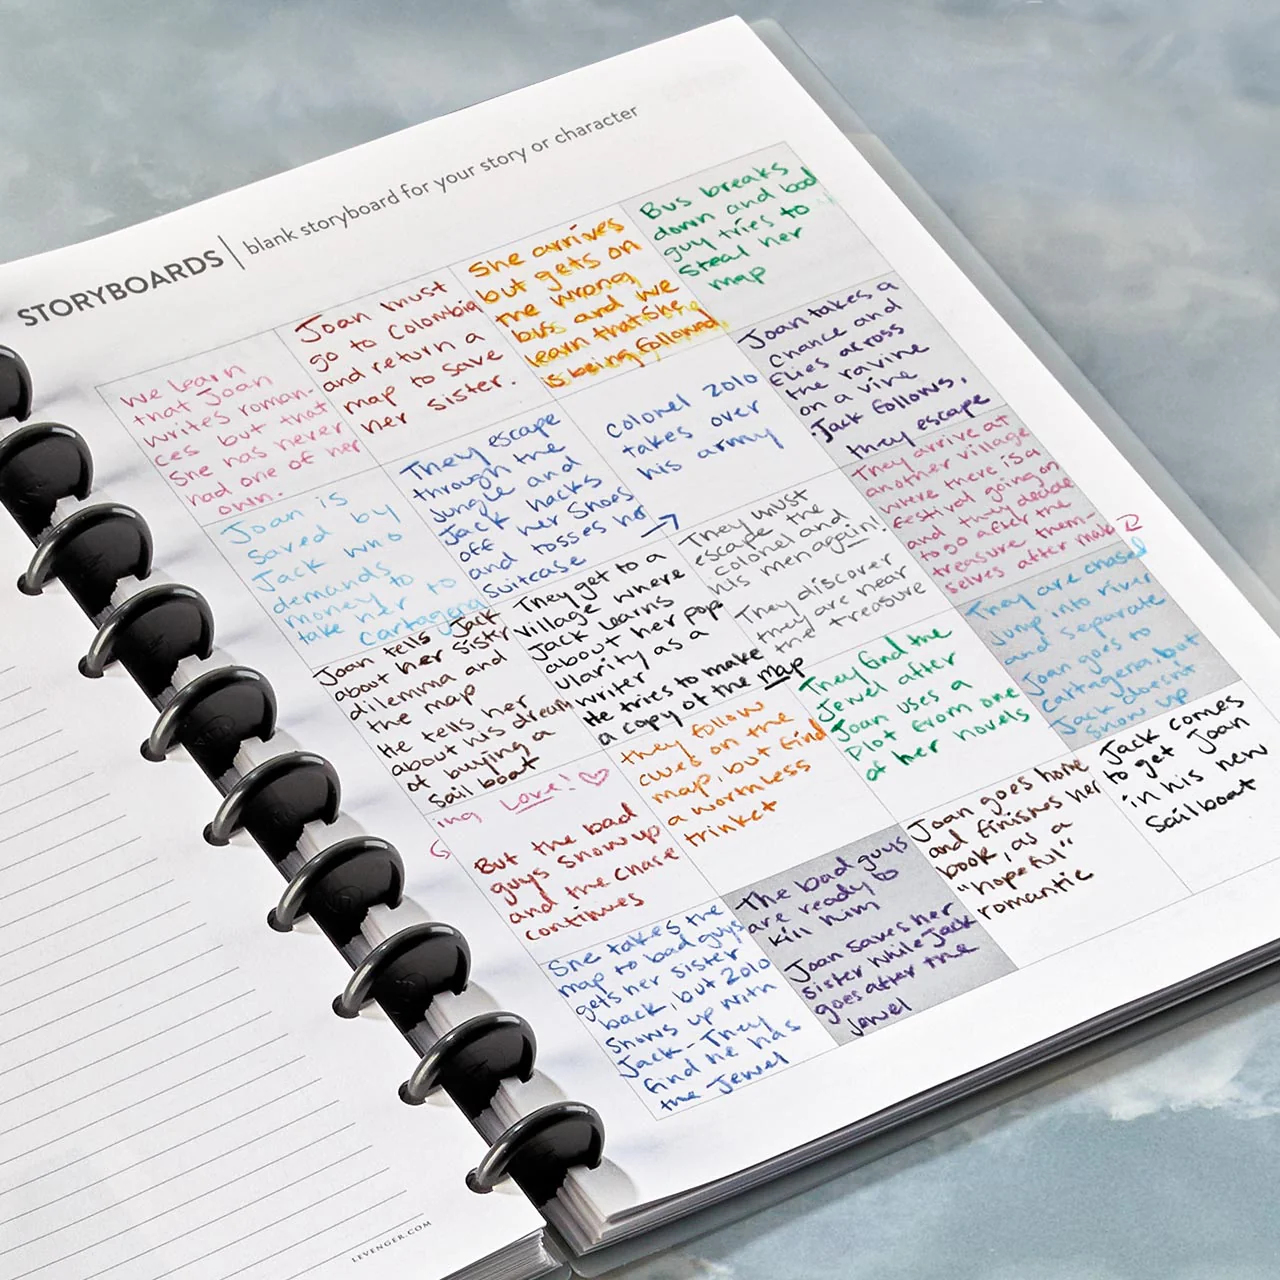 STORYBOARDS | blank storyboard for your story or character
We learn
that Joan
writes roman-
ces but that
she has never
had one of her
own.
Joan must
go to Colombia
and return a
map to save
her sister.
She arrives
but gets on
the wrong
bus and we
learn that she
is being followed
Bus breaks
down and bad
guy tries to
steal her
map
Joan is
saved by
Jack who
demands
money to
take her to
Cartagena
They escape
through the
jungle and
Jack hacks
off her shoes
and tosses her
suitcase
Colonel Zolo
takes over
his army
Joan takes a
chance and
flies across
the ravine
on a vine
Jack follows,
they escape
Joan tells Jack
about her sister
dilemma and
the map
He tells her
about his dream
of buying a
sail boat
They get to a
village where
Jack learns
about her pop-
ularity as a
writer
He tries to make
a copy of the map
They must
escape the
colonel and
his men again!
They discover
they are near
the treasure
They arrive at
another village
where there is a
festival going on
and they decide
to go after the
treasure them-
selves after mak-
ing Love! ♡
But the bad
guys show up
and the chase
continues
they follow
clues on the
map, but find
a worthless
trinket
They find the
Jewel after
Joan uses a
plot from one
of her novels
They are chased
Jump into river
and separate
Joan goes to
Cartagena, but
Jack doesn't
show up
She takes the
map to bad guys
gets her sister
back, but Zolo
shows up with
Jack - They
find he has
the Jewel
The bad guys
are ready to
kill him
Joan saves her
sister while Jack
goes after the
Jewel
Joan goes home
and finishes her
book, as a
"hopeful"
romantic
Jack comes
to get Joan
in his new
sailboat
LEVENGER.COM